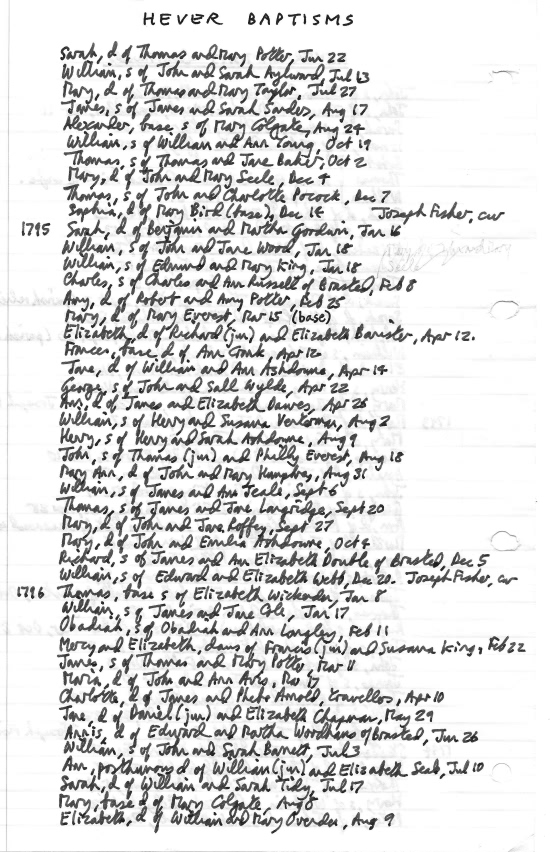 HEVER BAPTISMS
Sarah, d of Thomas and Mary Potter, Jun 22
William, s of John and Sarah Aylward, Jul 13
Mary, d of Thomas and Mary Taylor, Jul 27
James, s of James and Sarah Sanders, Aug 17
Alexander, base s of Mary Colgate, Aug 24
William, s of William and Ann Young, Oct 19
Thomas, s of Thomas and Jane Baker, Oct 2
Mary, d of John and Mary Seele, Dec 4
Thomas, s of John and Charlotte Pocock, Dec 7
Sophia, d of Mary Bird (base), Dec 14 Joseph Fisher, cur
1795 Sarah, d of Benjamin and Martha Goodwin, Jan 16
William, s of John and Jane Wood, Jan 18
William, s of Edmund and Mary King, Jan 18
Charles, s of Charles and Ann Russell of Brasted, Feb 8
Amy, d of Robert and Amy Potter, Feb 25
Mary, d of Mary Everest, Mar 15 (base)
Elizabeth, d of Richard (jun) and Elizabeth Banister, Apr 12.
Frances, base d of Ann Cronk, Apr 12
Jane, d of William and Ann Ashdowne, Apr 14
George, s of John and Sall Wylde, Apr 22
Ann, d of James and Elizabeth Dawes, Apr 26
William, s of Henry and Susana, Aug 2
Henry, s of Henry and Sarah Ashdowne, Aug 9
John, s of Thomas (jun) and Philly Everest, Aug 18
Mary Ann, d of John and Mary Humphrey, Aug 31
William, s of James and Ann Seale, Sept 6
Thomas, s of James and Jane Langridge, Sept 20
Mary, d of John and Jane Roffey, Sept 27
Mary, d of John and Emilia Ashdowne, Oct 4
Richard, s of James and Ann Elizabeth Double of Brasted, Dec 5
William, s of Edward and Elizabeth Webb, Dec 20. Joseph Fisher, cur
1796 Thomas, base s of Elizabeth Wickenden, Jan 8
William, s of James and Jane Cole, Jan 17
Obadiah, s of Obadiah and Ann Langley, Feb 11
Mercy and Elizabeth, daus of Francis (jun) and Susana King, Feb 22
James, s of Thomas and Mary Potter, Mar 11
Maria, d of John and Ann Avis, Mar 17
Charlotte, d of James and Phebe Arnold, travellers, Apr 10
Jane, d of Daniel (jun) and Elizabeth Chapman, May 29
Annis, d of Edward and Martha Woodhams of Brasted, Jun 26
William, s of John and Sarah Barnett, Jul 3
Ann, posthumous d of William (jun) and Elizabeth Seal, Jul 10
Sarah, d of William and Sarah Tidy, Jul 17
Mary, base d of Mary Colgate, Aug 8
Elizabeth, d of William and Mary, Aug 9